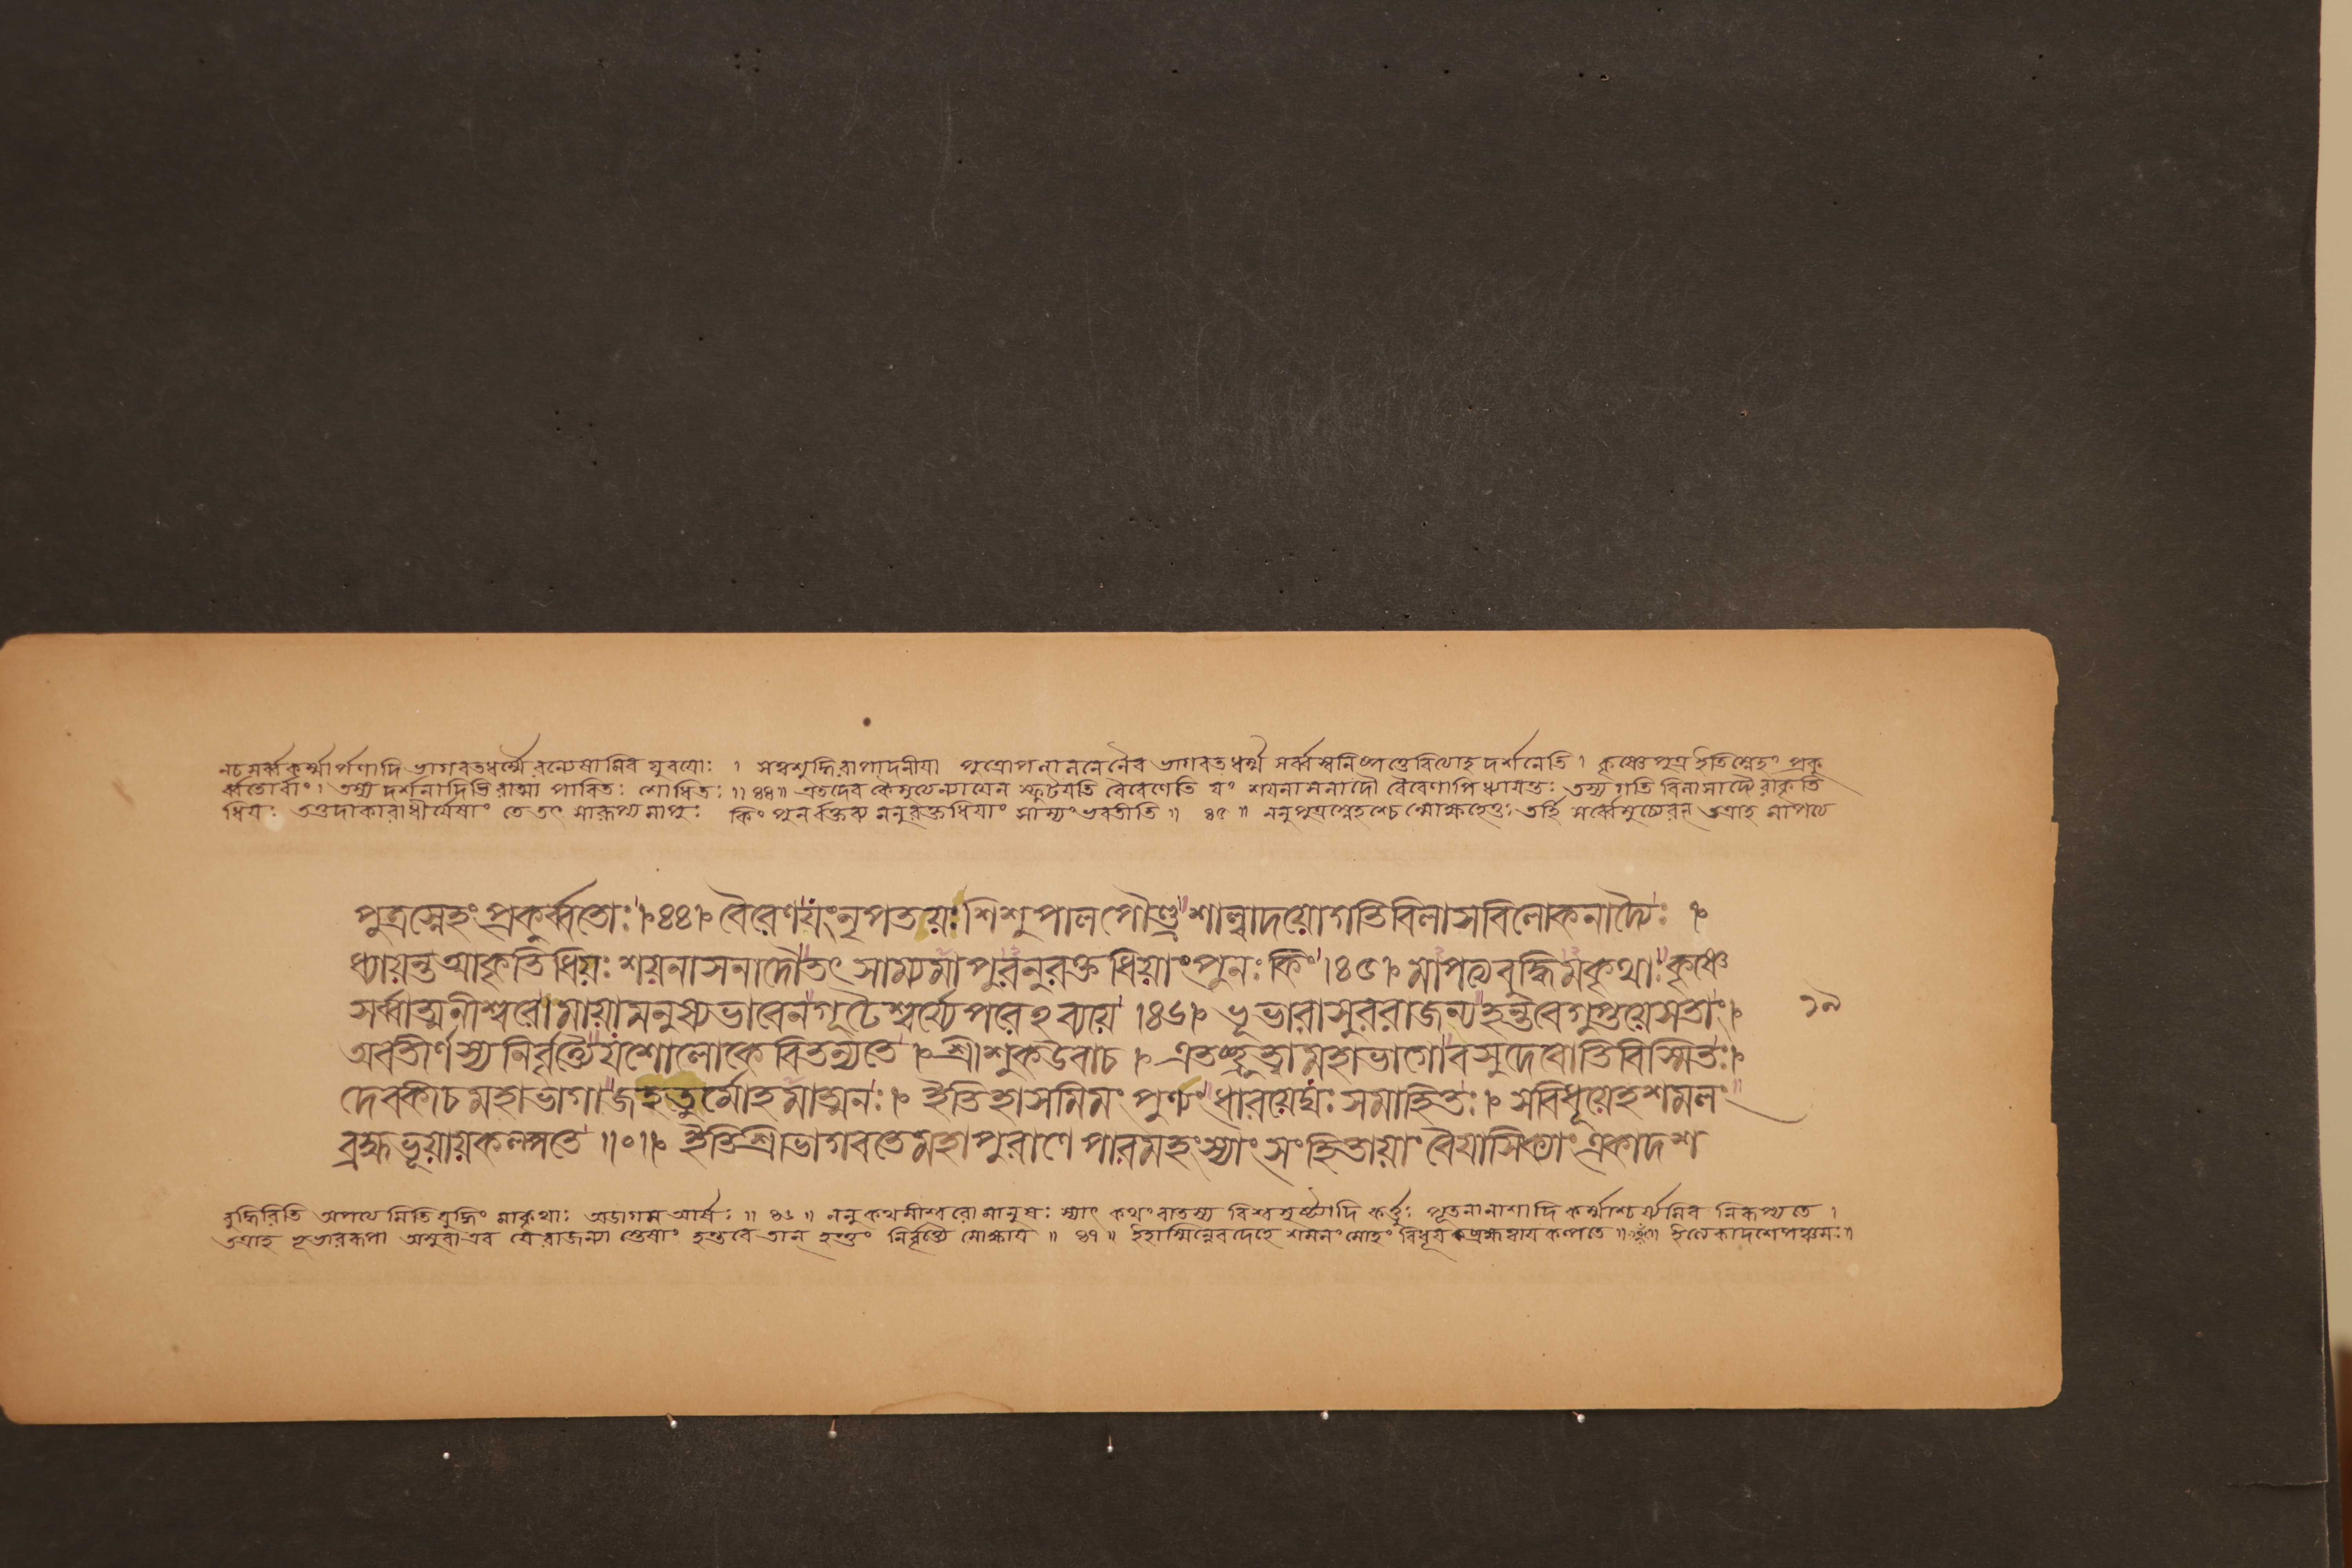 নচ সর্ব্বকর্ম্মার্পণাদি ভাগবতধর্ম্মৈরন্যেষামিব যুবয়োঃ । সত্বশুদ্ধিরাপাদনীয়া পুত্রোপলালনেনৈব ভাগবতধর্ম্ম সর্ব্বস্বনিষ্পত্তেরিত্যাহ দর্শনেতি । কৃষ্ণে পুত্র ইতি স্নেহং প্রকু
র্ব্বতোর্বাং । তস্য দর্শনাদিভিরাত্মা পাবিতঃ শোধিতঃ ॥ ৪৪ ॥ এতদেব কৈমুত্যেন্যায়েন স্ফুটয়তি বৈরেণেতি যং শয়নাসনাদৌ বৈরেণাপি ধ্যায়ন্তঃ তস্য গতি বিলাসাদ্যৈরাকৃতি
ধিয়ঃ তত্তদাকারাধীর্যেষাং তে তৎ সারূপ্যমাপুঃ কিং পুনর্বক্তব্য মনুরক্তধিয়াং সাম্যং ভবতীতি ॥ ৪৫ ॥ ননু পুত্রস্নেহশ্চেন্মোক্ষহেতুঃ তর্হি সর্ব্বেমুচ্যেরন্ তত্রাহ মাপত্যে
পুত্রস্নেহং প্রকুর্ব্বতোঃ । ৪৪ । বৈরেণ যং নৃপতয়ঃ শিশুপাল পৌণ্ড্র শাল্বাদয়ো গতিবিলাসবিলোকনাদ্যৈঃ ।
ধ্যায়ন্ত আকৃতিধিয়ঃ শয়নাসনাদৌ তৎ সাম্যমাপুরনুরক্ত ধিয়াং পুনঃ কিং । ৪৫ । মাপত্যবুদ্ধিমকৃথাঃ কৃষ্ণে
সর্ব্বাত্মনীশ্বরে মায়ামনুষ্যভাবেন গূঢৈশ্বর্য্যে পরেঽব্যয়ে । ৪৬ । ভূভারাসুররাজন্য হন্তবে গুপ্তয়ে সতাং ।
অবতীর্ণস্য নির্বৃত্যৈ যশোলোকে বিতন্যতে । শ্রীশুক উবাচ । এতচ্ছ্রুত্বা মহাভাগো বসুদেবোতি বিস্মিতঃ ।
দেবকী চ মহাভাগা জহতুর্মোহমাত্মনঃ । ইতিহাসমিমং পুণ্যং ধারয়েদ্যঃ সমাহিতঃ । স বিধূয়েহ শমলং
ব্রহ্মভূয়ায় কল্পতে ॥ ০ ॥ ইতি শ্রীভাগবতে মহাপুরাণে পারমহংস্যাং সংহিতায়াং বৈয়াসিক্যাং একাদশ
১৯
বুদ্ধিরিতি অপত্যেমিতি বুদ্ধিং মাকৃথাঃ অডাগম আর্ষঃ ॥ ৪৬ ॥ ননু কথমীশ্বরো মানুষঃ স্যাৎ কথং বাতস্য বিশ্বসৃষ্ট্যাদি কর্ত্তুঃ পূতনানাশাদি কর্ম্মাশ্চর্য্যমিব নিরূপ্যতে ।
তত্রাহ ভূভাররূপা অসুরা এব যে রাজন্যা স্তেষাং হন্তবে তান্ হন্তুং নির্বৃত্যৈ মোক্ষায় ॥ ৪৭ ॥ ইহাস্মিন্নেব দেহে শমলং মোহং বিধূয় ব্রহ্মত্বায় কল্পতে ॥ ইত্যেকাদশে পঞ্চমঃ ॥